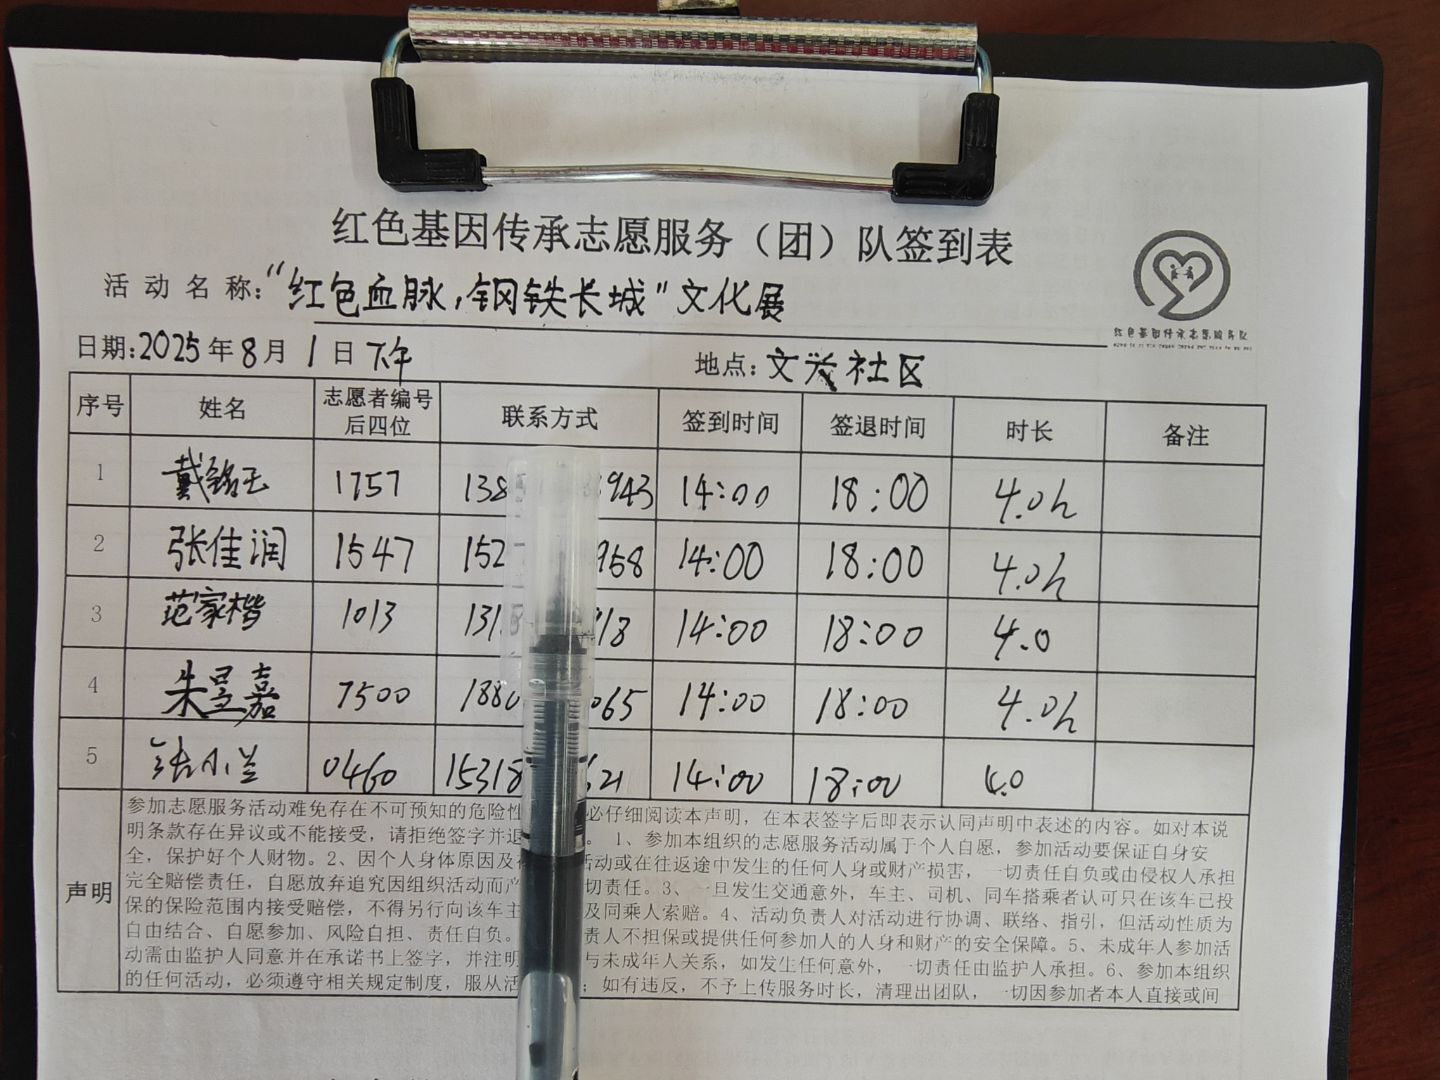 红色基因传承志愿服务（团）队签到表
活动名称："红色血脉,钢铁长城"文化展
红色基因传承志愿服务队
日期:2025年8月1日下午 地点:文兴社区
序号 姓名 志愿者编号后四位 联系方式 签到时间 签退时间 时长 备注
1 戴铭玉 1757 138 943 14:00 18:00 4.0h
2 张佳润 1547 152 958 14:00 18:00 4.0h
3 范家楷 1013 131 18:00 14:00 4.0
4 朱昱嘉 7500 188 065 14:00 18:00 4.0h
5 张小兰 0460 15318 21 14:00 18:00 4.0
声明
参加志愿服务活动难免存在不可预知的危险性 必仔细阅读本声明，在本表签字后即表示认同声明中表述的内容。如对本说
明条款存在异议或不能接受，请拒绝签字并退 。1、参加本组织的志愿服务活动属于个人自愿，参加活动要保证自身安
全，保护好个人财物。2、因个人身体原因及 活动或在往返途中发生的任何人身或财产损害，一切责任自负或由侵权人承担
完全赔偿责任，自愿放弃追究因组织活动而产 切责任。3、一旦发生交通意外，车主、司机、同车搭乘者认可只在该车已投
保的保险范围内接受赔偿，不得另行向该车主 及同乘人索赔。4、活动负责人对活动进行协调、联络、指引，但活动性质为
自由结合、自愿参加、风险自担、责任自负。 责人不担保或提供任何参加人的人身和财产的安全保障。5、未成年人参加活
动需由监护人同意并在承诺书上签字，并注明 与未成年人关系，如发生任何意外，一切责任由监护人承担。6、参加本组织
的任何活动，必须遵守相关规定制度，服从活 ；如有违反，不予上传服务时长，清理出团队，一切因参加者本人直接或间